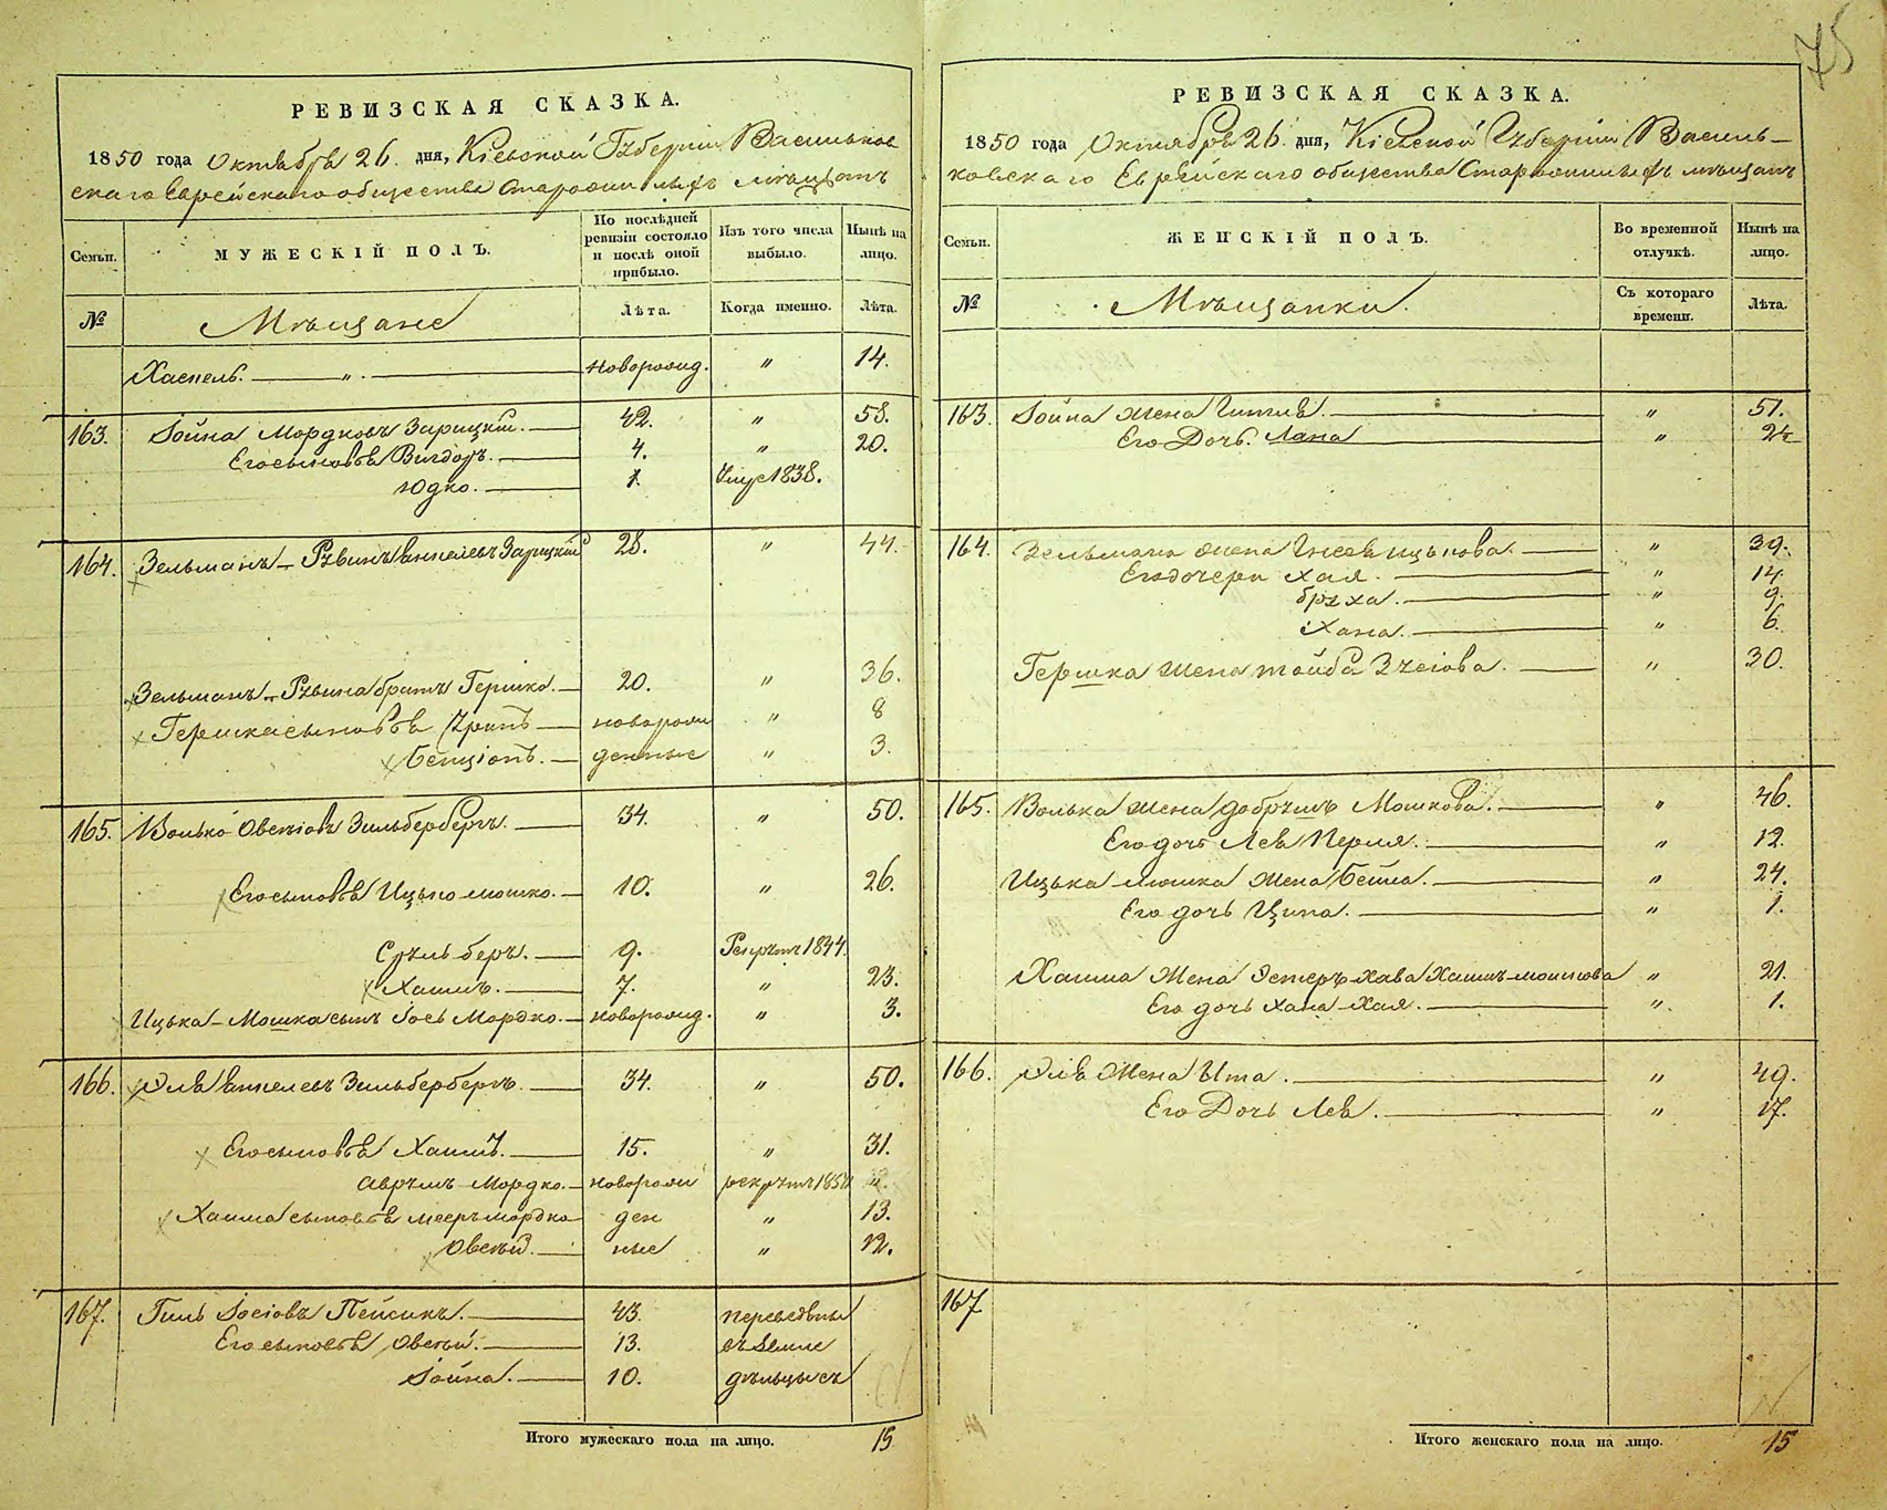 75
РЕВИЗСКАЯ СКАЗКА.
1850 года Октября 26. дня, Кіевской Губерніи Васильков
скаго Еврейскаго общества Старозаконныхъ мѣщанъ
Семьи. МУЖЕСКІЙ ПОЛЪ. По послѣдней ревизіи состояло и послѣ оной прибыло. Изъ того числа выбыло. Нынѣ на лицо.
№ Мѣщане Лѣта. Когда именно. Лѣта.
Хаскель. " новорожд. " 14.
163. Іойна Мордковъ Зарицкій. 42. " 58.
Его сыновья Вигдоръ. 4. " 20.
Юдко. 1. Умре 1838.
164. Зельманъ-Рувинъ Янкелевъ Зарицкій 28. " 44.
Зельманъ-Рувина братъ Гершко. 20. " 36.
Гершка сыновья новорож " 8
Бенціонъ. денные " 3.
165. Волько Овсѣіовъ Зильбербергъ. 34. " 50.
Его сыновья Ицько-мошко. 10. " 26.
Сруль беръ. 9. Рекрутъ 1844.
Хаимъ. 7. " 23.
Ицька-Мошка сынъ Іось Мордко. новорожд. " 3.
166. Эля Янкелевъ Зильбербергъ. 34. " 50.
Его сыновья Хаимъ. 15. " 31.
Аврумъ-Мордко. новорож рекрутъ 1850 "
Хаима сыновья мееръ мордко ден " 13.
Овсѣй. ные " 12.
167. Гиль Іосіовъ Пейсикъ. 43. переведены
Его сыновья Овсѣй. 13. въ земле
Іойна. 10. дѣльцы съ
Итого мужескаго пола на лицо. 15
РЕВИЗСКАЯ СКАЗКА.
1850 года Октября 26 дня, Кіевской Губерніи Василь-
ковскаго Еврейскаго общества Старозаконныхъ мѣщанъ
Семьи. ЖЕНСКІЙ ПОЛЪ. Во временной отлучкѣ. Нынѣ на лицо.
№ Мѣщанки. Съ котораго времени. Лѣта.
163. Іойна жена Гитля. " 51.
Его Дочь. Лана " 24
164. Зельмана жена Гнеся Ицькова. " 39.
Его дочери Хая. " 14.
бруха. " 9.
Хана. " 6.
Гершка жена тойба Зусіова. " 30.
165. Волька жена Добрушъ Мошкова. " 46.
Его дочь Лея Перля. " 12.
Ицька-мошка жена Бейла. " 24.
Его дочь Ципа. " 1.
Хаима Жена Эстеръ-хава Хаимъ-мошкова " 21.
Его дочь хана-хая. " 1.
166. Эля Жена Ита. " 49.
Его Дочь Лея. " 17.
167
Итого женскаго пола на лицо. 15